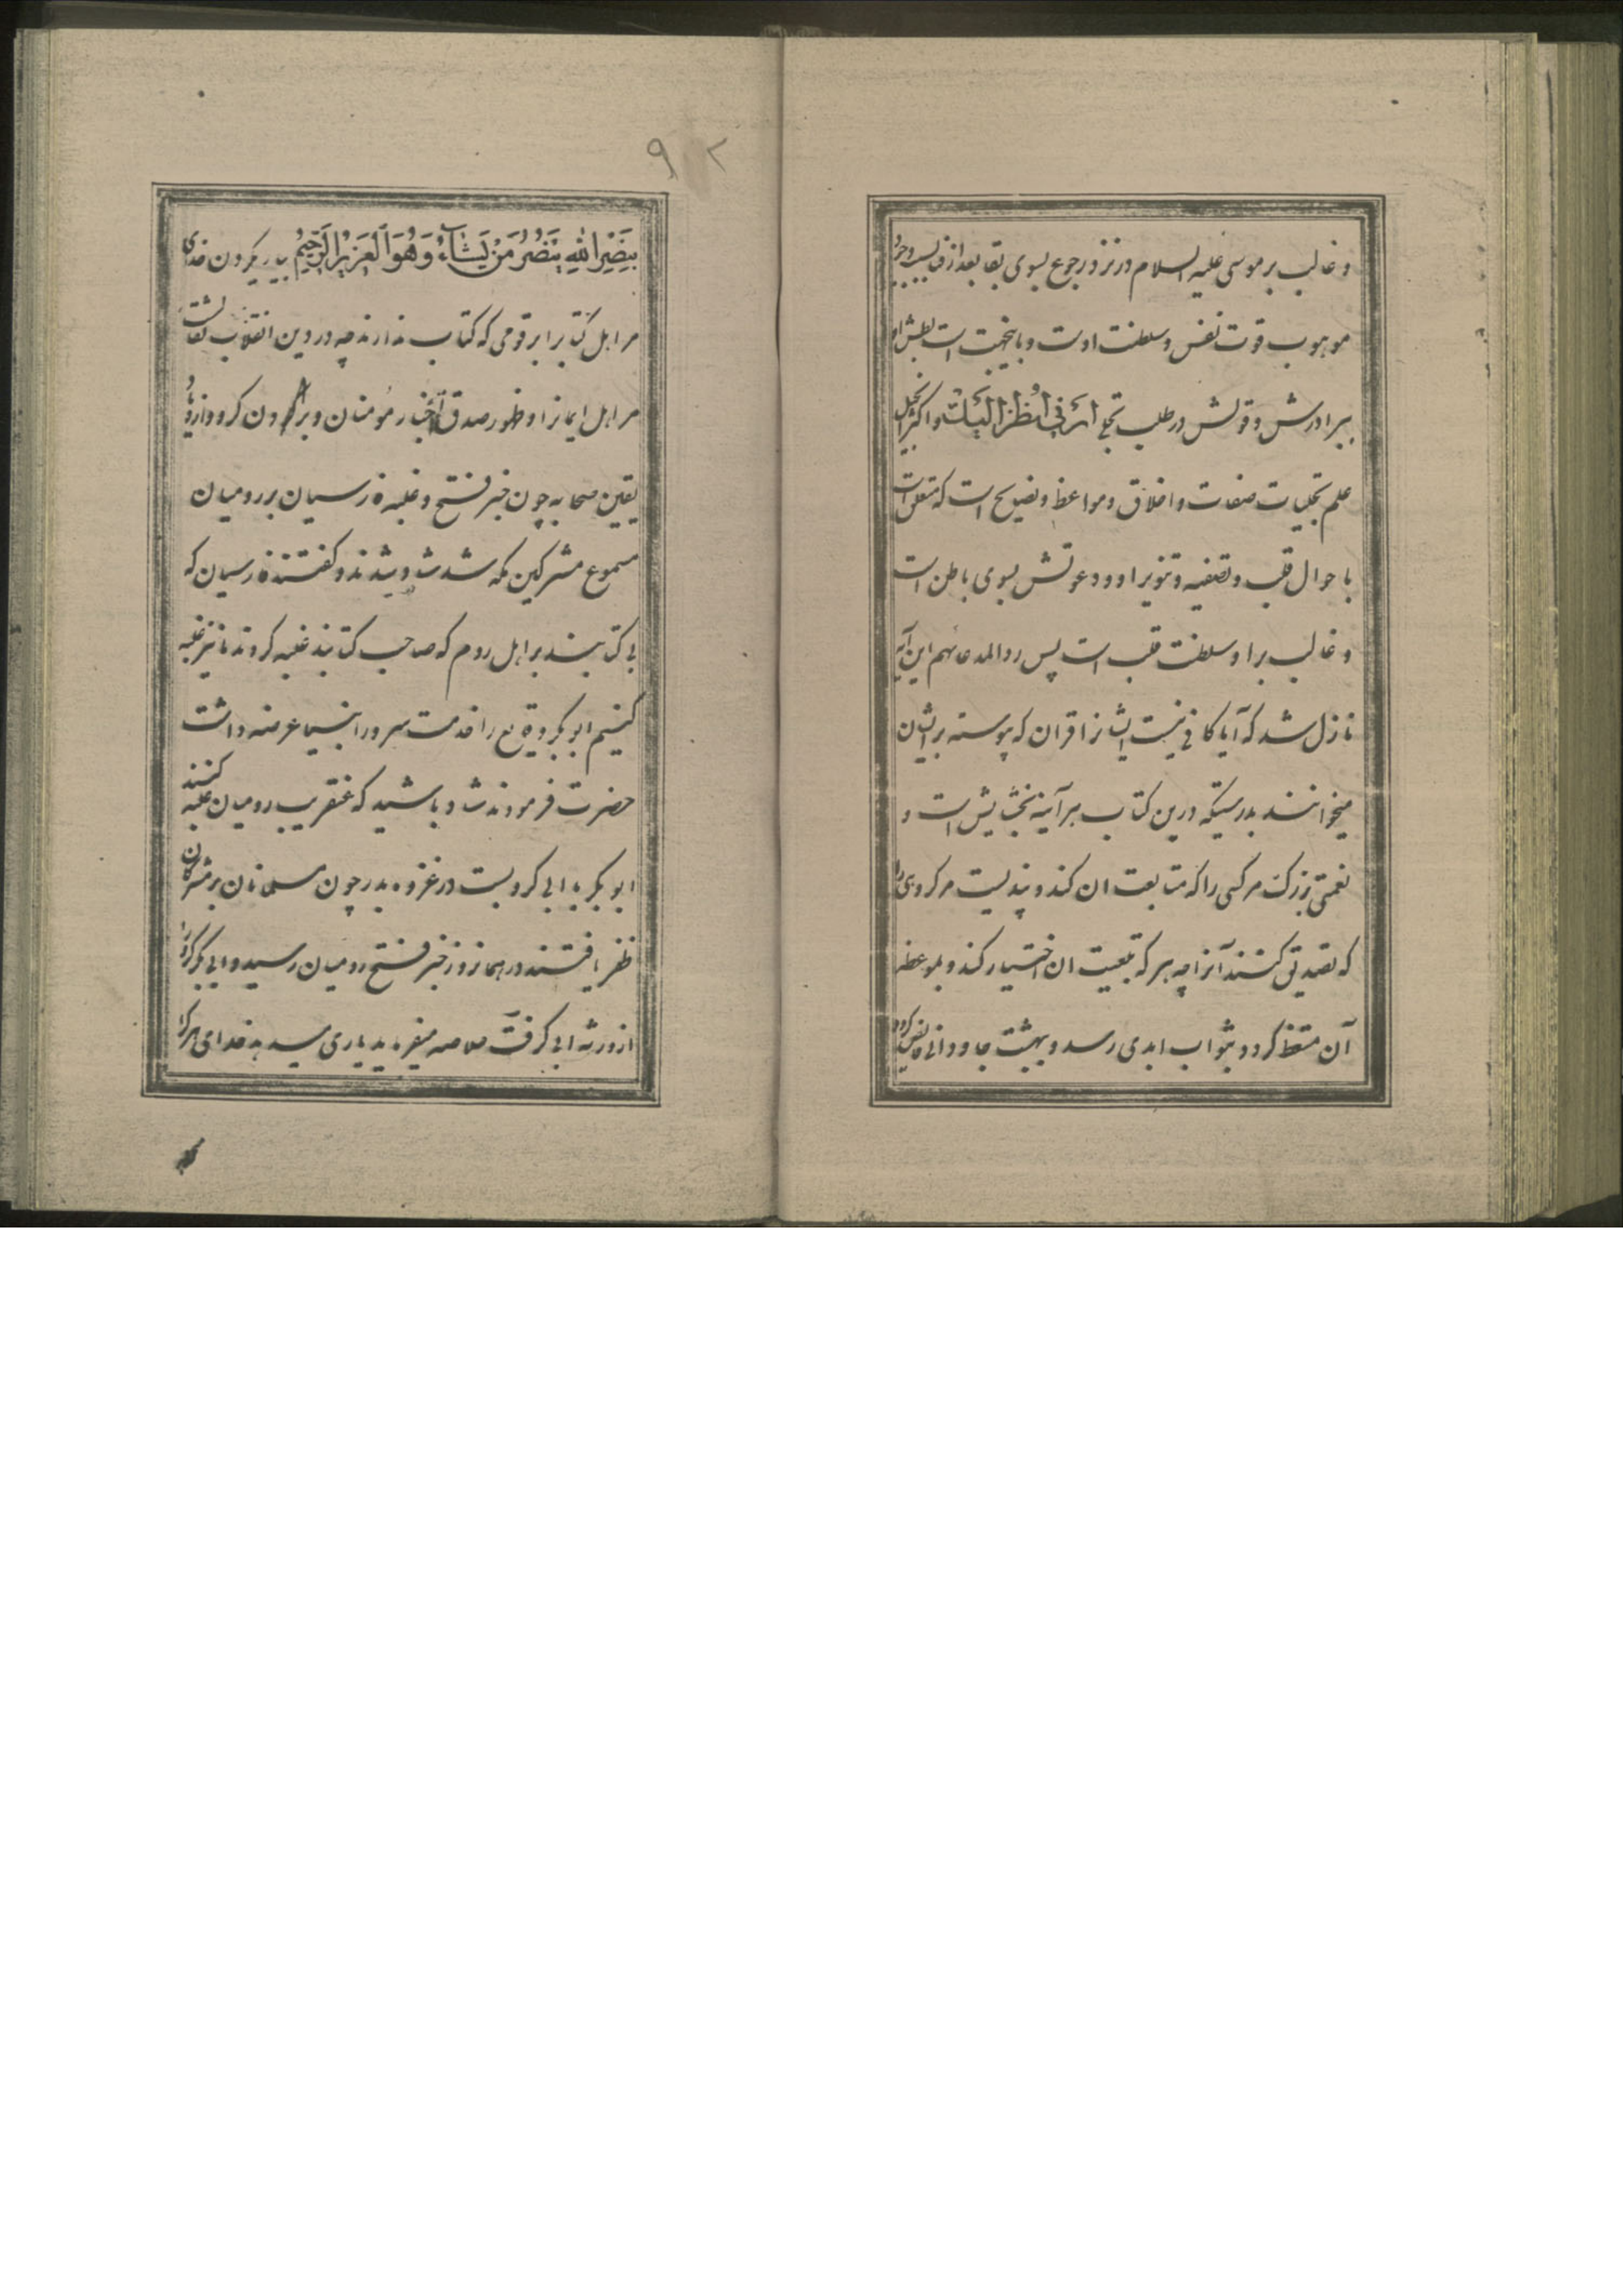 و غالب بر موسی علیه السلام در نزد رجوع بسوی بقا بعد از فنا بسبب وجود
موهوب قوت نفس و سلطنت اوست و باینجهت است بطش او
ببرادرش و قولش در طلب تجلی اَرِنی اَنظُر اِلَیکَ و اکثر انجیل
علم تجلیات صفات و اخلاق و مواعظ و نصایح است که متعلق است
با حوال قلب و تصفیه و تنویر او و دعوتش بسوی باطن است
و غالب بر او سلطنت قلب است پس ردا لمدعائهم این آیه
نازل شد که آیا کافی نیست ایشانرا قران که پیوسته بر ایشان
میخوانند بدرستیکه درین کتاب هر آینه بخشایش است و
نعمتی بزرک مر کسی را که متابعت ان کند و پندیست مر کروهی را
که تصدیق کنند آنرا چه هر که تبعیت ان اختیار کند و بموعظه
آن متعظ کردد بثواب ابدی رسد و ببهشت جاودانی فایض کردد
۹۲
بِنَصرِ اللهِ یَنصُرُ مَن یَشَاءُ وَهُوَ العَزِیزُ الرَّحِیمُ بیاریکردن خدای
مر اهل کتابرا بر قومی که کتاب ندارند چه در دین انقلاب
مر اهل ایمانرا و ظهور صدق اخبار مؤمنان و بر
یقین صحابه چون خبر فتح و غلبه فارسیان بر رومیان
مسموع مشرکین مکه شد شاد شدند و کفتند فارسیان که
بی کتابند بر اهل روم که صاحب کتابند غلبه کردند ما نیز غلبه
کنیم ابوبکر وقایع را خدمت سرور انبیا عرضه داشت
حضرت فرمودند شاد باشید که عنقریب رومیان غلبه کنند
ابوبکر با ابی کرو بست در غزوه بدر چون مسلمانان بر مشرکان
ظفر یافتند در همانروز خبر فتح رومیان رسید و ابی بکر کرو را
از ورثه ابی کرفت خلاصه میفرماید یاری میدهد خدای هر کرا